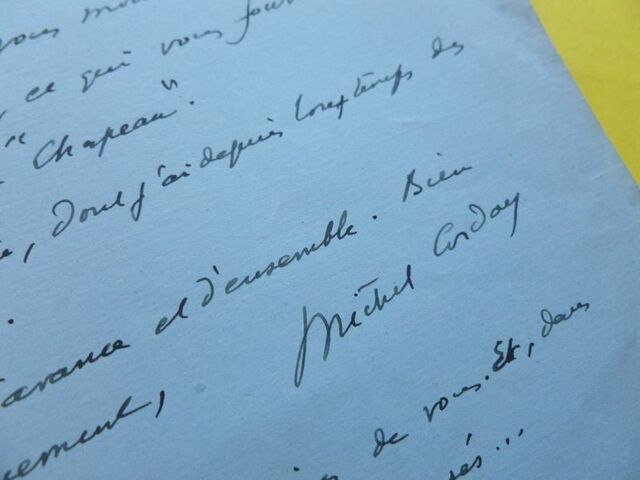 vous
, ce qui vous
" Chapeau".
, dont j'ai depuis longtemps des
avance et d'ensemble. Bien
uement,
Michel Corday
de vous. Et, dans
és...